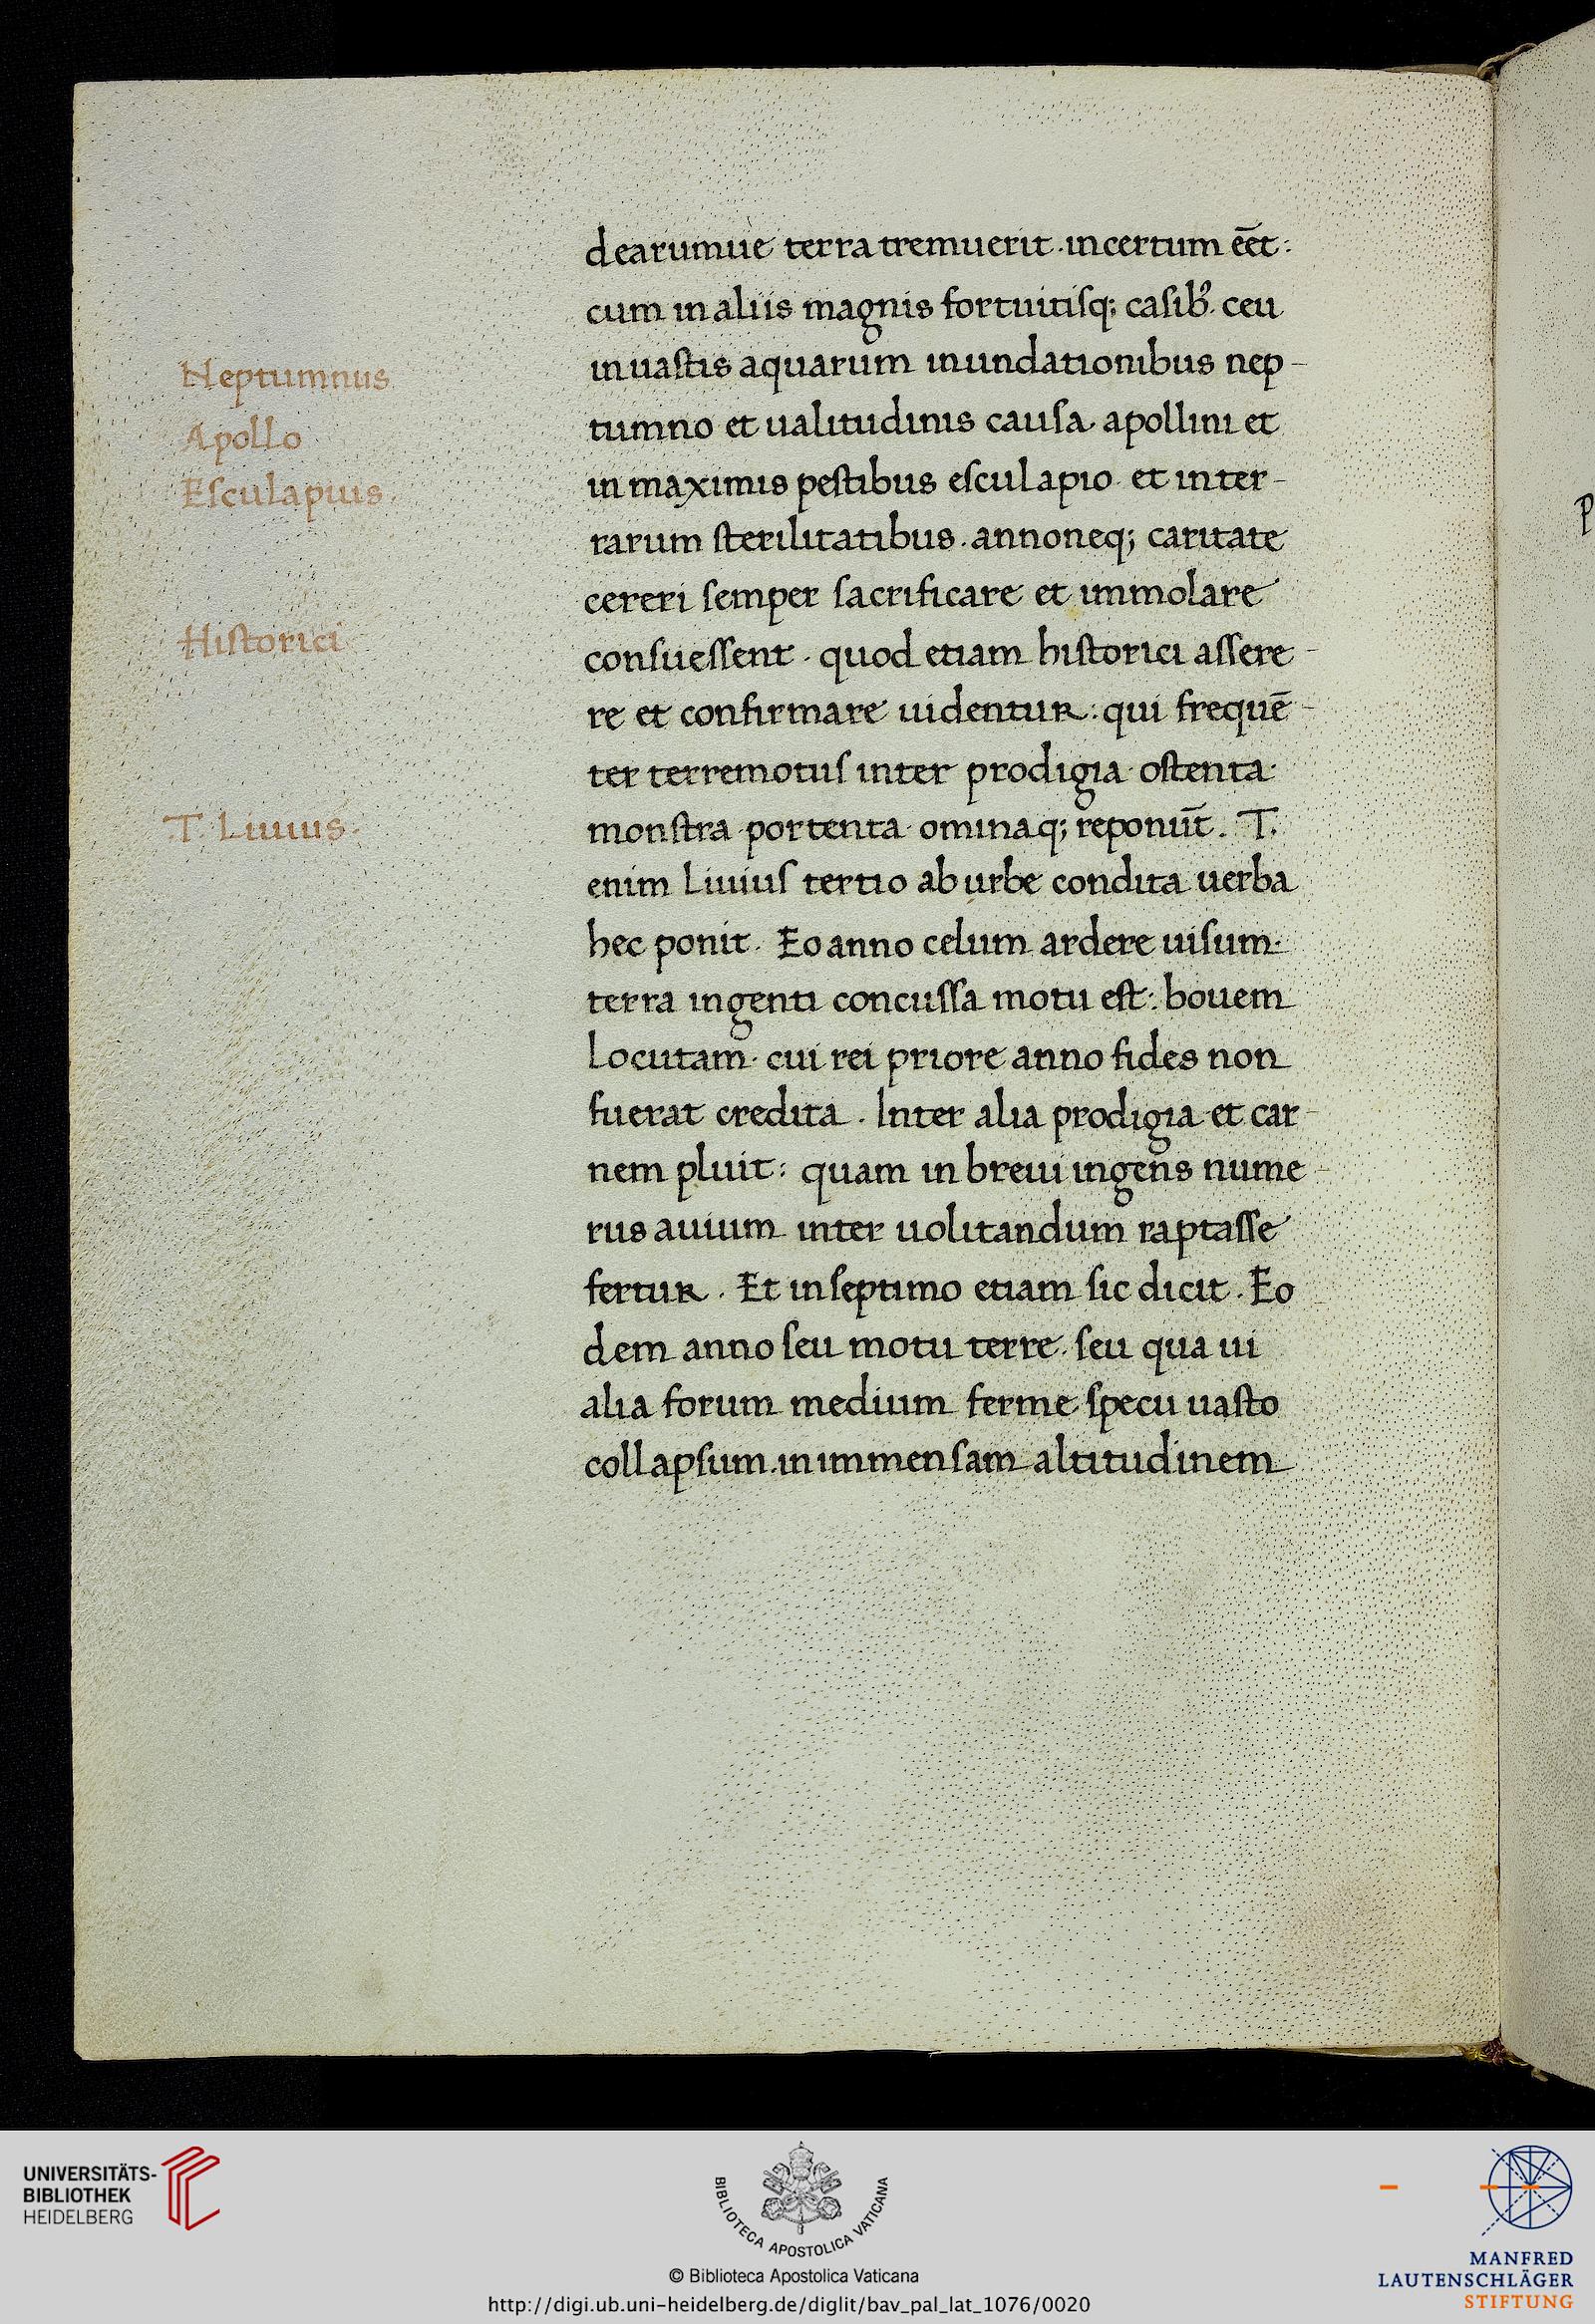 dearumue terra tremuerit · incertum eēt :
cum in aliis magnis fortuitisq; casib9 · ceu
in uastis aquarum inundationibus nep-
tumno et ualitudinis causa apollini et
in maximis pestibus esculapio et in ter-
rarum sterilitatibus · annoneq; caritate
cereri semper sacrificare et immolare
consuessent · quod etiam historici assere-
re et confirmare uidentur : qui frequē-
ter terremotus inter prodigia · ostenta ·
monstra · portenta · ominaq; reponūt . T.
enim Liuius tertio ab urbe condita uerba
hec ponit . Eo anno celum ardere uisum ·
terra ingenti concussa motu est : bouem
locutam · cui rei priore anno fides non
fuerat credita . Inter alia prodigia et car-
nem pluit : quam in breui ingens nume-
rus auium inter uolitandum raptasse
fertur . Et in septimo etiam sic dicit . Eo
dem anno seu motu terre · seu qua ui
alia forum medium ferme specu uasto
collapsum · in immensam altitudinem
Neptumnus
Apollo
Esculapius
Historici
T. Liuius
UNIVERSITÄTS-
BIBLIOTHEK
HEIDELBERG
BIBLIOTECA APOSTOLICA VATICANA
© Biblioteca Apostolica Vaticana
http://digi.ub.uni-heidelberg.de/diglit/bav_pal_lat_1076/0020
MANFRED
LAUTENSCHLÄGER
STIFTUNG